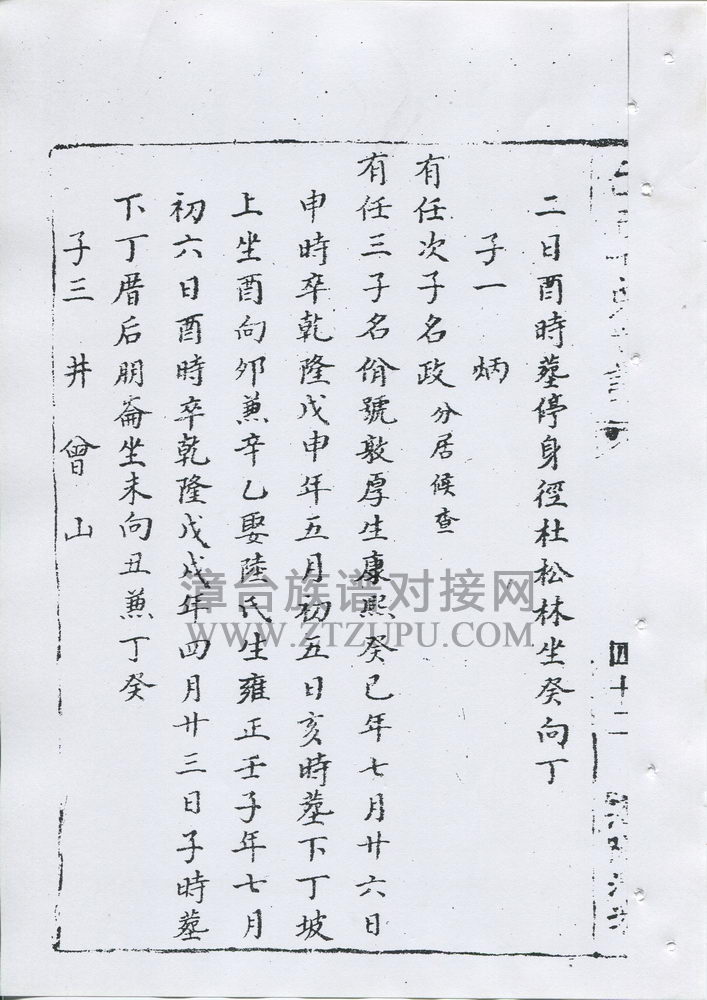 二日酉時塟停身徑杜松林坐癸向丁
子一 炳
有任次子名政分居候查
有任三子名佾號敦厚生康熙癸巳年七月廿六日
申時卒乾隆戊申年五月初五日亥時塟下丁坡
上坐酉向夘兼辛乙娶陸氏生雍正壬子年七月
初六日酉時卒乾隆戊戌年四月廿三日子時塟
下丁厝后朋崙坐未向丑兼丁癸
子三 井 曾 山
四十二
漳台族谱对接网
WWW.ZTZUPU.COM